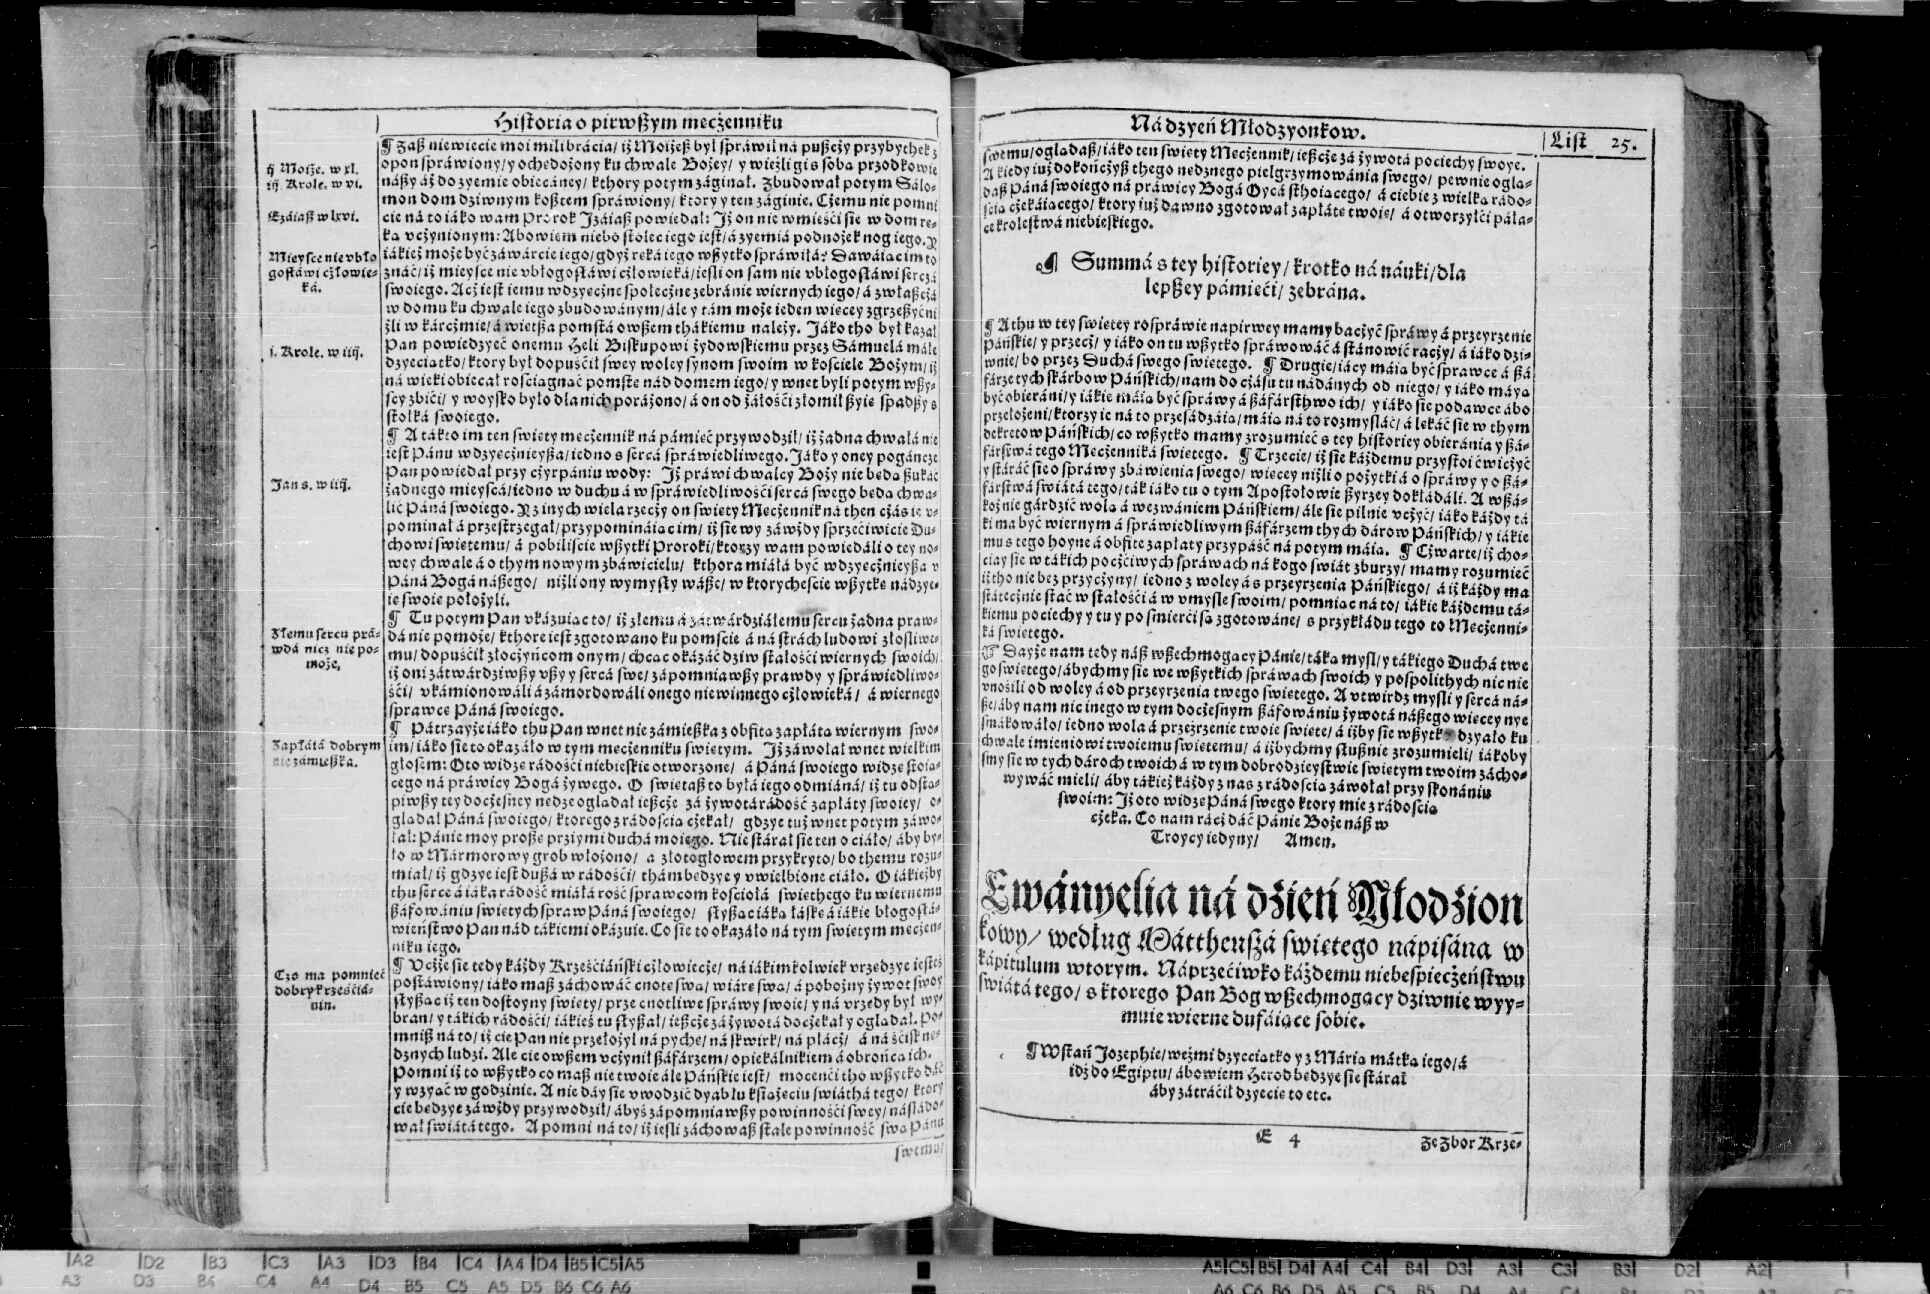 Historia o pirwßym mecżenniku
ij Moiże. w xl.
iij. Krole. w vi.
Ezáiaß w lxvi.
Mieysce nie vbło
gosłáwi cżłowie-
ká.
j. Krole. w iiij.
Jan s. w iiij.
Złemu sercu prá-
wdá nicz nie po-
może,
Zapłátá dobrym
nie zámießka.
Czo ma pomnieć
dobry krześćiá-
nin.
¶ Zaß niewiecie moi mili bráciá/ iż Moiżeß był spráwił ná pußcży przybythek z
opon spráwiony/ y ochedożony ku chwale Bożey/ y wieźli gi s soba przodkowie
náßy áż do zyemie obiecáney/ kthory potym záginał. Zbudował potym Sálo-
mon dom dziwnym koßtem spráwiony/ ktory y ten záginie. Cżemu nie pomni
cie ná to iáko wam Prorok Jzáiaß powiedal: Jż on nie w mieśći sie w dom re-
ka vcżynionym: Abowiem niebo stolec iego iest/ á zyemiá podnożek nog iego. Y
iákież może być záwárcie iego/ gdyż reká iego wßytko spráwiłá? Dawáiac im to
znáć/ iż mieysce nie vbłogosłáwi cżłowieká/ iesli on sam nie vbłogosłáwi sercżá
swoiego. Acż iest iemu wdzyecżne społecżne zebránie wiernych iego/ á zwłaßcżá
w domu ku chwale iego zbudowánym/ ále y tám może ieden wiecey zgrzeßyć ni
żli w kárcżmie/ á wietßa pomstá owßem thákiemu należy. Jáko tho był kazał
Pan powiedzyeć onemu Heli Biskupowi żydowskiemu przez Sámuelá máłe
dzyeciatko/ ktory był dopuśćił swey woley synom swoim w kościele Bożym/ iż
ná wieki obiecał rościagnać pomste nád domem iego/ y wnet byli potym wßy-
scy zbići/ y woysko było dla nich poráżono/ á on od żáłośći złomił ßyie spadßy s
stolká swoiego.
¶ A tákto im ten swiety mecżennik ná pámieć przywodził/ iż żadna chwałá nie
iest Pánu wdzyecżnieyßa/ iedno s sercá spráwiedliwego. Jáko y oney pogánce
Pan powiedal przy cżyrpániu wody: Jż práwi chwalcy Boży nie beda ßukáć
żadnego mieyscá/ iedno w duchu á w spráwiedliwośći sercá swego beda chwa-
lić Páná swoiego. Y z inych wiela rzecży on swiety Mecżennik ná then cżás ie v-
pominał á przestrzegał/ przypomináiac im/ iż sie wy záwżdy sprzećiwicie Du-
chowi swietemu/ á pobiliście wßytki Proroki/ ktorzy wam powiedáli o tey no-
wey chwale á o thym nowym zbáwicielu/ kthora miáłá być wdzyecżnieyßa v
Páná Bogá náßego/ niżli ony wymysły wáße/ w ktorycheście wßytke nádzye-
ie swoie położyli.
¶ Tu potym Pan vkázuiac to/ iż złemu á zátwárdziálemu sercu żadna praw-
dá nie pomoże/ kthore iest zgotowano ku pomście á ná strách ludowi złosliwe-
mu/ dopuśćił złocżyńcom onym/ chcac okázáć dziw stałośći wiernych swoich/
iż oni zátwárdziwßy vßy y sercá swe/ zápomniawßy prawdy y spráwiedliwo-
śći/ vkámionowáli á zámordowáli onego niewinnego cżłowieká/ á wiernego
sprawce Páná swoiego.
¶ Pátrzayże iáko thu Pan wnet nie zámießka z obfita zapłáta wiernym swo-
im/ iáko sie to okazáło w tym mecżenniku swietym. Jż záwołał wnet wielkim
głosem: Oto widze rádośći niebieskie otworzone/ á Páná swoiego widze stoia-
cego ná práwicy Bogá żywego. O swietaß to byłá iego odmiáná/ iż tu odsta-
piwßy tey docżesney nedze ogladał ießcże zá żywotá rádość zapłáty swoiey/ o-
gladał Páná swoiego/ ktorego z rádościa cżekał/ gdzye tuż wnet potym záwo-
łał: Pánie moy proße przyimi duchá moiego. Nie stárał sie ten o ciáło/ áby by-
ło w Mármorowy grob włożono/ a złotogłowem przykryto/ bo themu rozu-
miał/ iż gdzye iest dußá w rádośći/ thám bedzye y vwielbione ciáło. O iákieżby
thu serce á iáka rádość miáłá rość sprawcom kościołá swiethego ku wiernemu
ßáfowániu swietych spraw Páná swoiego/ słyßac iáka łáske á iákie błogosłá-
wieństwo Pan nád tákiemi okázuie. Co sie to okazáło ná tym swietym mecżen-
niku iego.
¶ Vcżże sie tedy káżdy Krześćiáński cżłowiecże/ ná iákimkolwiek vrzedzye iesteś
postáwiony/ iáko maß záchowáć cnote swa/ wiáre swa/ á pobożny żywot swoy
słyßac iż ten dostoyny swiety/ prze cnotliwe spráwy swoie/ y ná vrzedy był wy-
bran/ y tákich rádośći/ iákieś tu słyßał/ ießcże zá żywotá docżekał y ogladał. Po-
mniß ná to/ iż cie Pan nie przełożył ná pyche/ ná skwirk/ ná płácż/ á ná śćisk ne-
dznych ludzi. Ale cie owßem vcżynił ßáfárzem/ opiekálnikiem á obrońca ich.
Pomni iż to wßytko co maß nie twoie ále Páńskie iest/ mocenći tho wßytko dáć
y wzyać w godzinie. A nie day sie vwodzić dyabłu ksiażeciu swiáthá tego/ ktory
cie bedzye záwżdy przywodził/ ábyś zápomniawßy powinnośći swey/ násládo-
wał swiátá tego. A pomni ná to/ iż iesli záchowaß stale powinność swa Pánu
swemu/
Ná dzyeń Młodzyonkow.
List 25.
swemu/ ogladaß/ iáko ten swiety Mecżennik/ ießcże zá żywotá pociechy swoye.
A kiedy iuż dokończyß thego nedznego pielgrzymowánia swego/ pewnie ogla-
daß Páná swoiego ná práwicy Bogá Oycá sthoiacego/ á ciebie z wielka rádo-
ścia cżekáiacego/ ktory iuż dawno zgotował zapłáte twoię/ á otworzyłći páła-
ce krolestwá niebieskiego.
¶ Summá s tey historiey/ krotko ná náuki/ dla
lepßey pámieći/ zebrána.
¶ A thu w tey swietey rospráwie napirwey mamy bacżyć spráwy á przeyrzenie
Páńskie/ y przecż/ y iáko on tu wßytko spráwowáć á stánowić racży/ á iáko dzi-
wnie/ bo przez Duchá swego swietego. ¶ Drugie/ iácy máia być sprawce á ßá
fárze tych skárbow Páńskich/ nam do cżásu tu nádánych od niego/ y iáko máya
być obieráni/ y iákie máia być spráwy á ßáfárstwo ich/ y iáko sie podawce ábo
przełożeni/ ktorzy ie ná to przesádzáia/ máia ná to rozmysláć/ á lekáć sie w thym
dekretow Páńskich/ co wßytko mamy zrozumieć s tey historiey obieránia y ßá-
fárstwá tego Mecżenniká swietego. ¶ Trzecie/ iż sie káżdemu przystoi ćwicżyć
y stáráć sie o spráwy zbáwienia swego/ wiecey niżli o pożytki á o spráwy y o ßá-
fárstwá swiátá tego/ ták iáko tu o tym Apostołowie ßyrzey dokłádáli. A wßá-
koż nie gárdzić wola á wezwániem Páńskiem/ ále sie pilnie vcżyć/ iáko káżdy tá
ki ma być wiernym á spráwiedliwym ßáfárzem thych dárow Páńskich/ y iákie
mu s tego hoyne á obfite zapłáty przypáść ná potym máia. ¶ Cżwarte/ iż cho-
ciay sie w tákich pocżćiwych spráwach ná kogo swiát zburzy/ mamy rozumieć
iż tho nie bez przycżyny/ iedno z woley á s przeyrzenia Páńskiego/ á iż káżdy ma
státecżnie stać w stałośći á w vmysle swoim/ pomniac ná to/ iákie káżdemu tá-
kiemu pociechy y tu y po śmierći sa zgotowáne/ s przykłádu tego to Mecżenni-
ká swietego.
¶ Dayże nam tedy náß wßechmogacy Pánie/ táka mysl/ y tákiego Duchá twe
go swietego/ ábychmy sie we wßytkich spráwach swoich y pospolithych nic nie
vnośili od woley á od przeyrzenia twego swietego. A vtwirdź mysli y sercá ná-
ße/ áby nam nic inego w tym docżesnym ßáfowániu żywotá náßego wiecey nye
smákowáło/ iedno wola á przeżrzenie twoie swiete/ á iżby sie wßytko dzyało ku
chwale imieniowi twoiemu swietemu/ á iżbychmy słußnie zrozumieli/ iákoby
smy sie w tych dároch twoich á w tym dobrodzieystwie swietym twoim zácho-
wywáć mieli/ áby tákież káżdy z nas z rádościa záwołał przy skonániu
swoim: Jż oto widze Páná swego ktory mie z rádościa
cżeka. Co nam rácż dáć Pánie Boże náß w
Troycy iedyny/ Amen.
Ewányelia ná dźień Młodźion
kowy/ według Máttheußá swietego nápisána w
kápitulum wtorym. Náprzećiwko káżdemu niebespiecżeństwu
swiátá tego/ s ktorego Pan Bog wßechmogacy dziwnie wyy-
muie wierne dufáiące sobie.
¶ Wstań Jozephie/ weźmi dzyeciatko y z Mária mátka iego/ á
idź do Egiptu/ ábowiem Herod bedzye sie stárał
áby zátráćił dzyecie to etc.
E 4
Ze Zbor Krze-